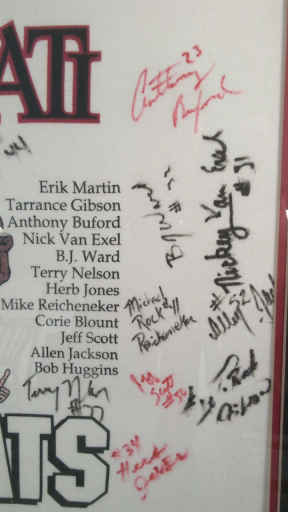 ATI
23
Anthony
Buford
44
Erik Martin
Tarrance Gibson
Anthony Buford
Nick Van Exel
B.J. Ward
Terry Nelson
Herb Jones
Mike Reicheneker
Corie Blount
Jeff Scott
Allen Jackson
Bob Huggins
BJ Ward
Nickey Van Exel
#31
Michael
Rock
Reicheneker
#52
Jeff
Scott
T. Rock
Gibson
Terry Nelson
#34
Herb
Jones
ATS